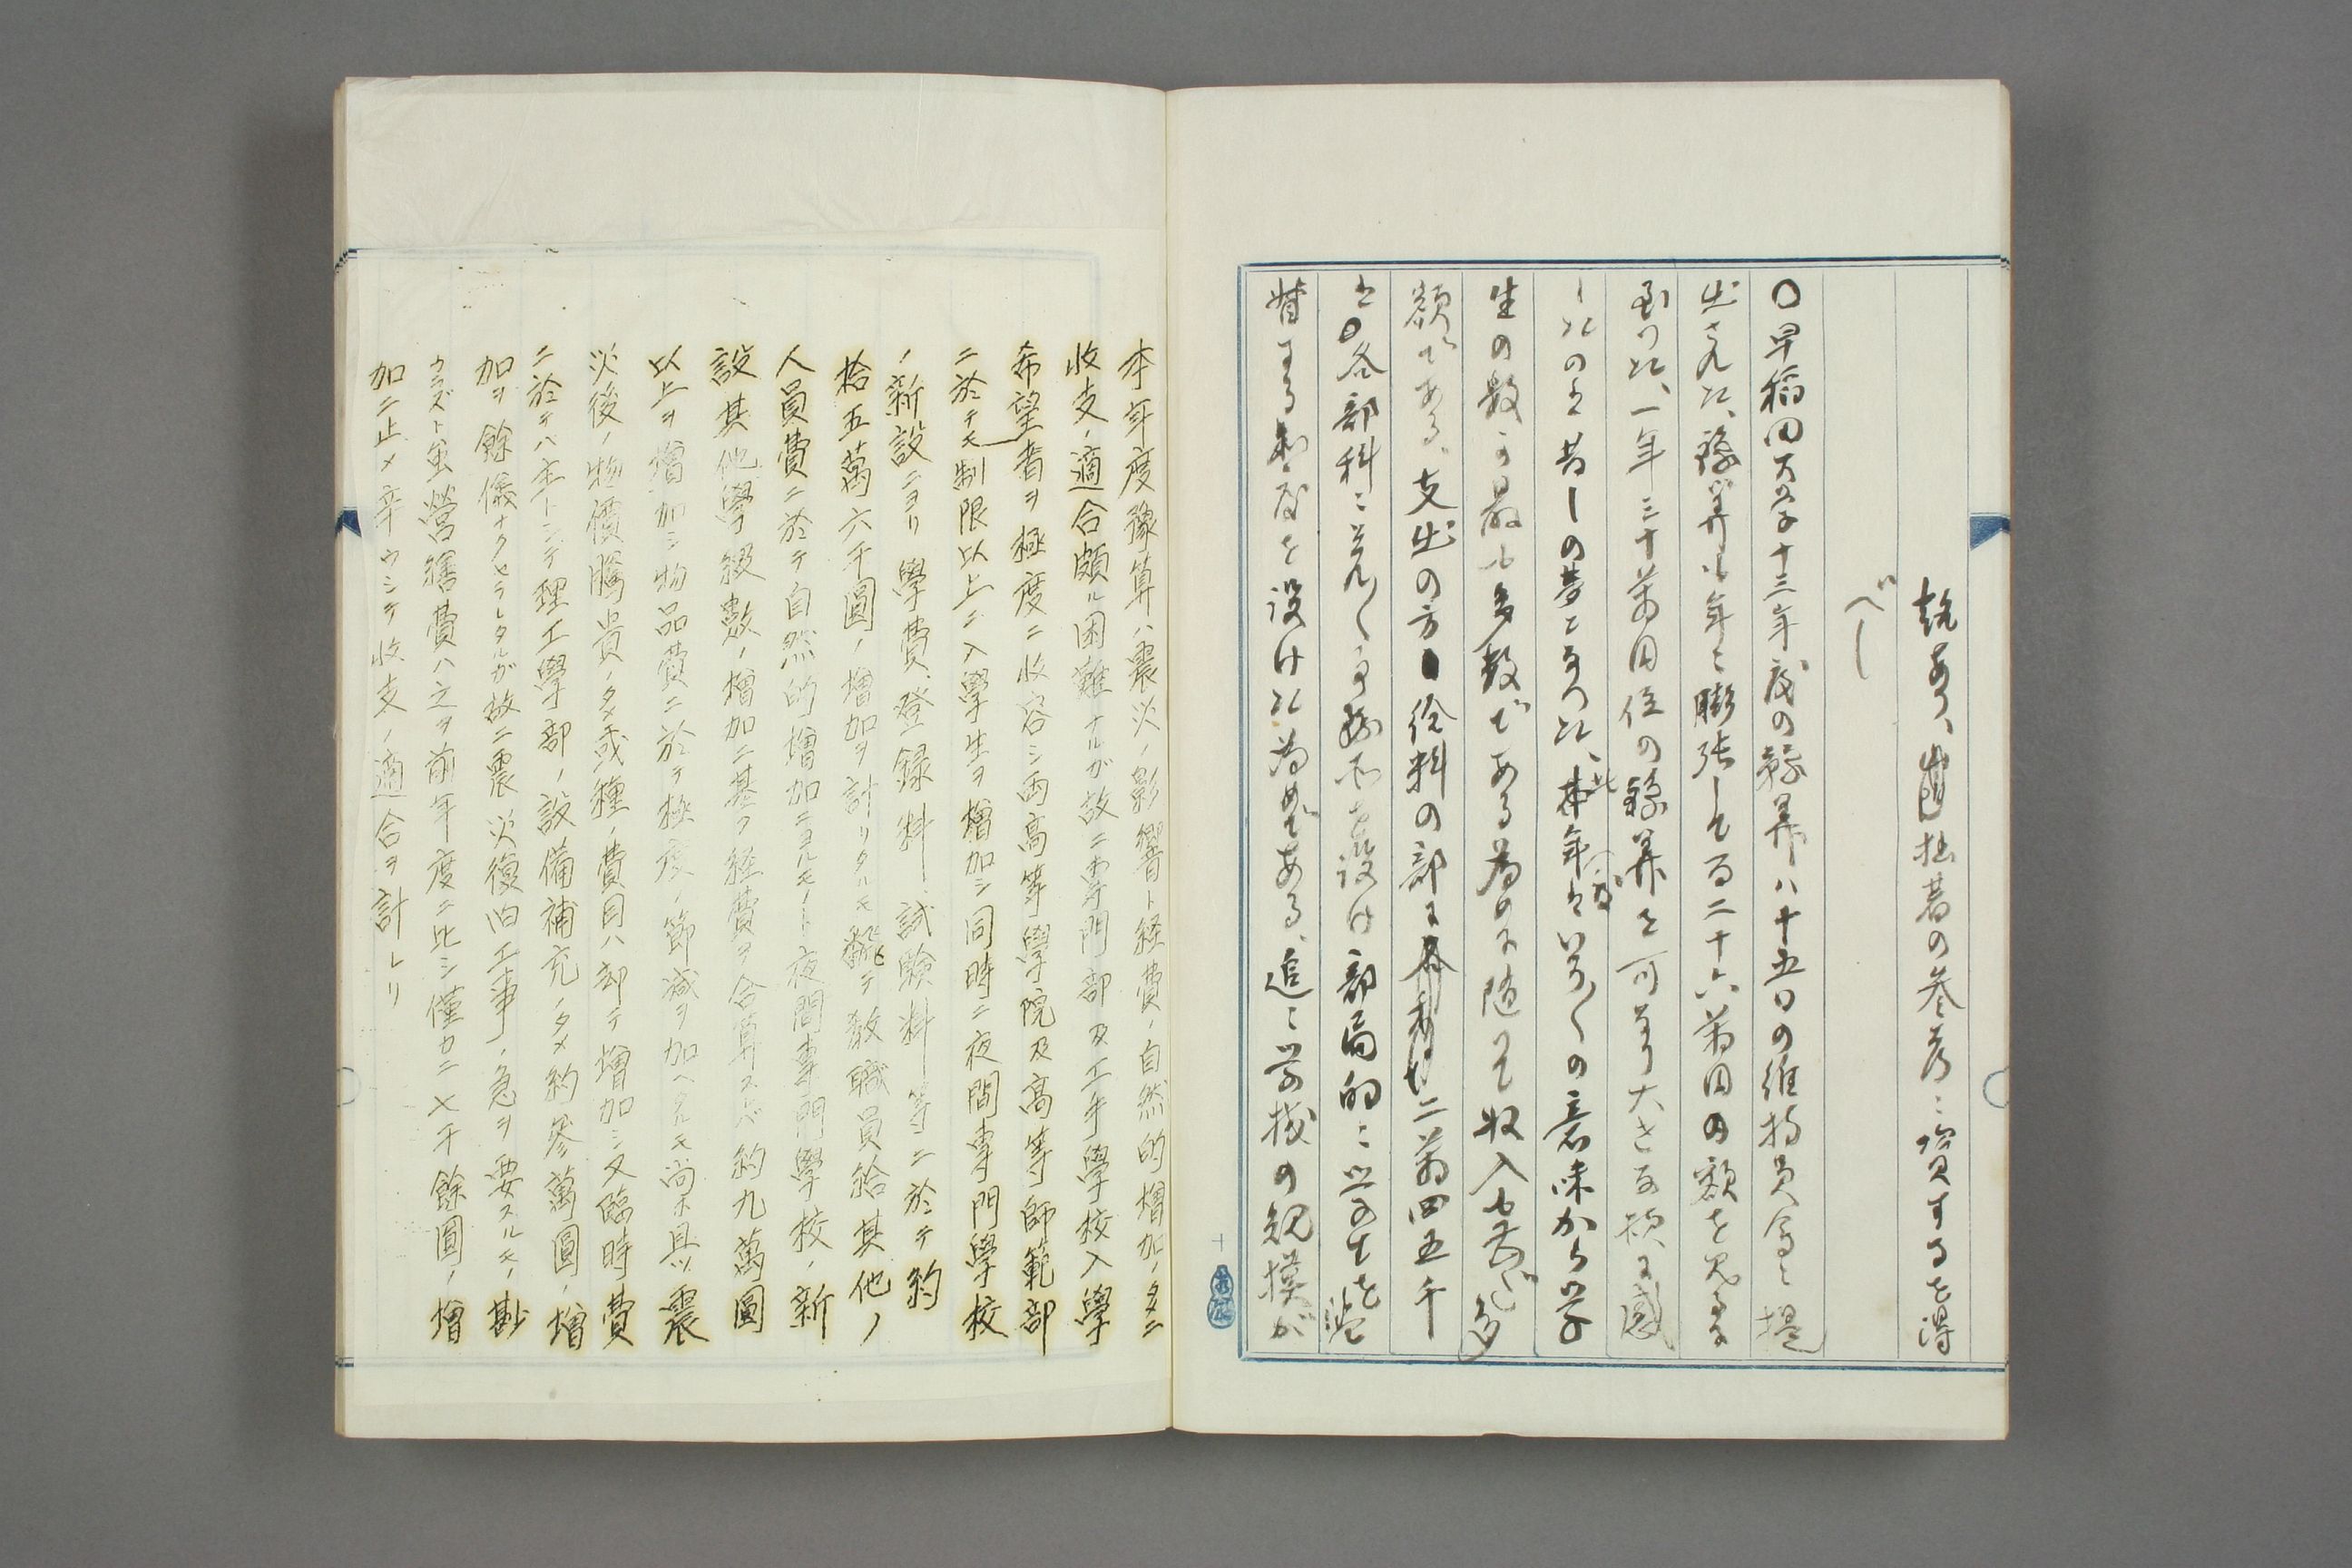 説あり、拙著の参考ニ資するを得
べし
〇早稲田大学十三年度の豫算ハ十五日の維持員会ニ提
出された、豫算も年々膨張して百二十六萬円の額を見るに
到つた、一年三十萬円位の豫算を可なり大きな額に感
じたのは昔しの夢となつた、此年度はいろ〱の意味から学
生の数が最も多数である為めに随つて収入も無論多
額である、支出の方は給料の部に二萬四五千
は各部科にそれ〱事務所を設け部局的に学生を監
督する制度を設けた為めである、追々学校の規模が
本年度豫算ハ震災ノ影響ト経費ノ自然的増加ノタメニ
收支ノ適合頗ル困難ナルガ故ニ専門部及工手學校入學
希望者ヲ極度ニ收容シ両高等學院及高等師範部
ニ於テモ制限以上ニ入學生ヲ増加シ同時ニ夜間専門學校
ノ新設ニヨリ學費、登録料、試験料等ニ於テ約
拾五萬六千圓ノ増加ヲ計リタルモ翻テ教職員給其他ノ
人員費ニ於テ自然的増加ニヨルモノト夜間専門學校ノ新
設其他學級數ノ増加ニ基ク経費ヲ合算スレバ約九萬圓
以上ヲ増加シ物品費ニ於テ極度ノ節減ヲ加ヘタルモ尚ホ且ツ震
災後ノ物價騰貴ノタメ或種ノ費目ハ却テ増加シ又臨時費
ニ於テハ主トシテ理工學部ノ設備補充ノタメ約参萬圓ノ増
加ヲ餘儀ナクセラレタルガ故ニ震災復旧工事ノ急ヲ要スルモノ尠
カラズト虽營繕費ハ之ヲ前年度ニ比シ僅カニ七千餘圓ノ増
加ニ止メ辛ウシテ收支ノ適合ヲ計レリ